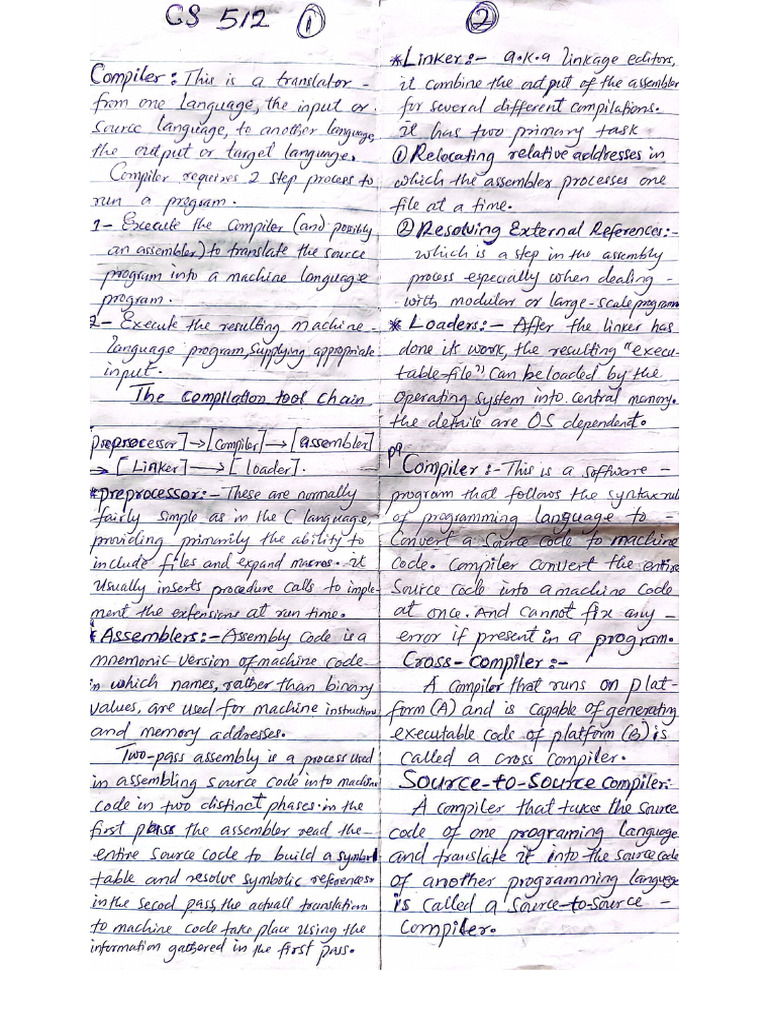 CS 512 ①
Compiler: This is a translator -
from one language, the input or
source language, to another language,
the output or target language.
Compiler requires 2 step process to
run a program.
1- Execute the compiler (and possibly
an assembler) to translate the source
program into a machine language
program.
2- Execute the resulting machine -
language program, supplying appropriate
input.
The compilation tool chain
preprocessor] → [compiler] → [assembler]
→ [Linker] → [loader].
*preprocessor:- These are normally
fairly simple as in the C language,
providing primarily the ability to
include files and expand macros. it
usually inserts procedure calls to imple-
ment the extensions at run time.
*Assemblers:- Assembly code is a
mnemonic version of machine code
in which names, rather than binary
values, are used for machine instruction
and memory addresses.
Two-pass assembly is a process used
in assembling source code into machine
code in two distinct phases. in the
first pass the assembler read the-
entire source code to build a symbol
table and resolve symbolic references.
in the secod pass, the actuall translation
to machine code take place using the
information gathered in the first pass.
②
*Linker:- a.k.a linkage editors,
it combine the output of the assembler
for several different compilations.
it has two primary task
① Relocating relative addresses in
which the assembler processes one
file at a time.
② Resolving External References:-
which is a step in the assembly
process especially when dealing -
with modular or large-scale programs
* Loaders:- After the linker has
done its work, the resulting "execu-
table-file") can be loaded by the
operating system into central memory.
the details are OS dependent.
pg
Compiler:- This is a software -
program that follows the syntax rul
of programming language to -
convert a source code to machine
code. Compiler convert the entire
source code into a machine code
at once. And cannot fix any -
error if present in a program.
Cross-compiler:-
A compiler that runs on plat-
form (A) and is capable of generating
executable code of platform (B) is
called a cross compiler.
Source-to-Source compiler:-
A compiler that takes the source
code of one programing language
and translate it into the source code
of another programming language
is called a source-to-source -
compiler.